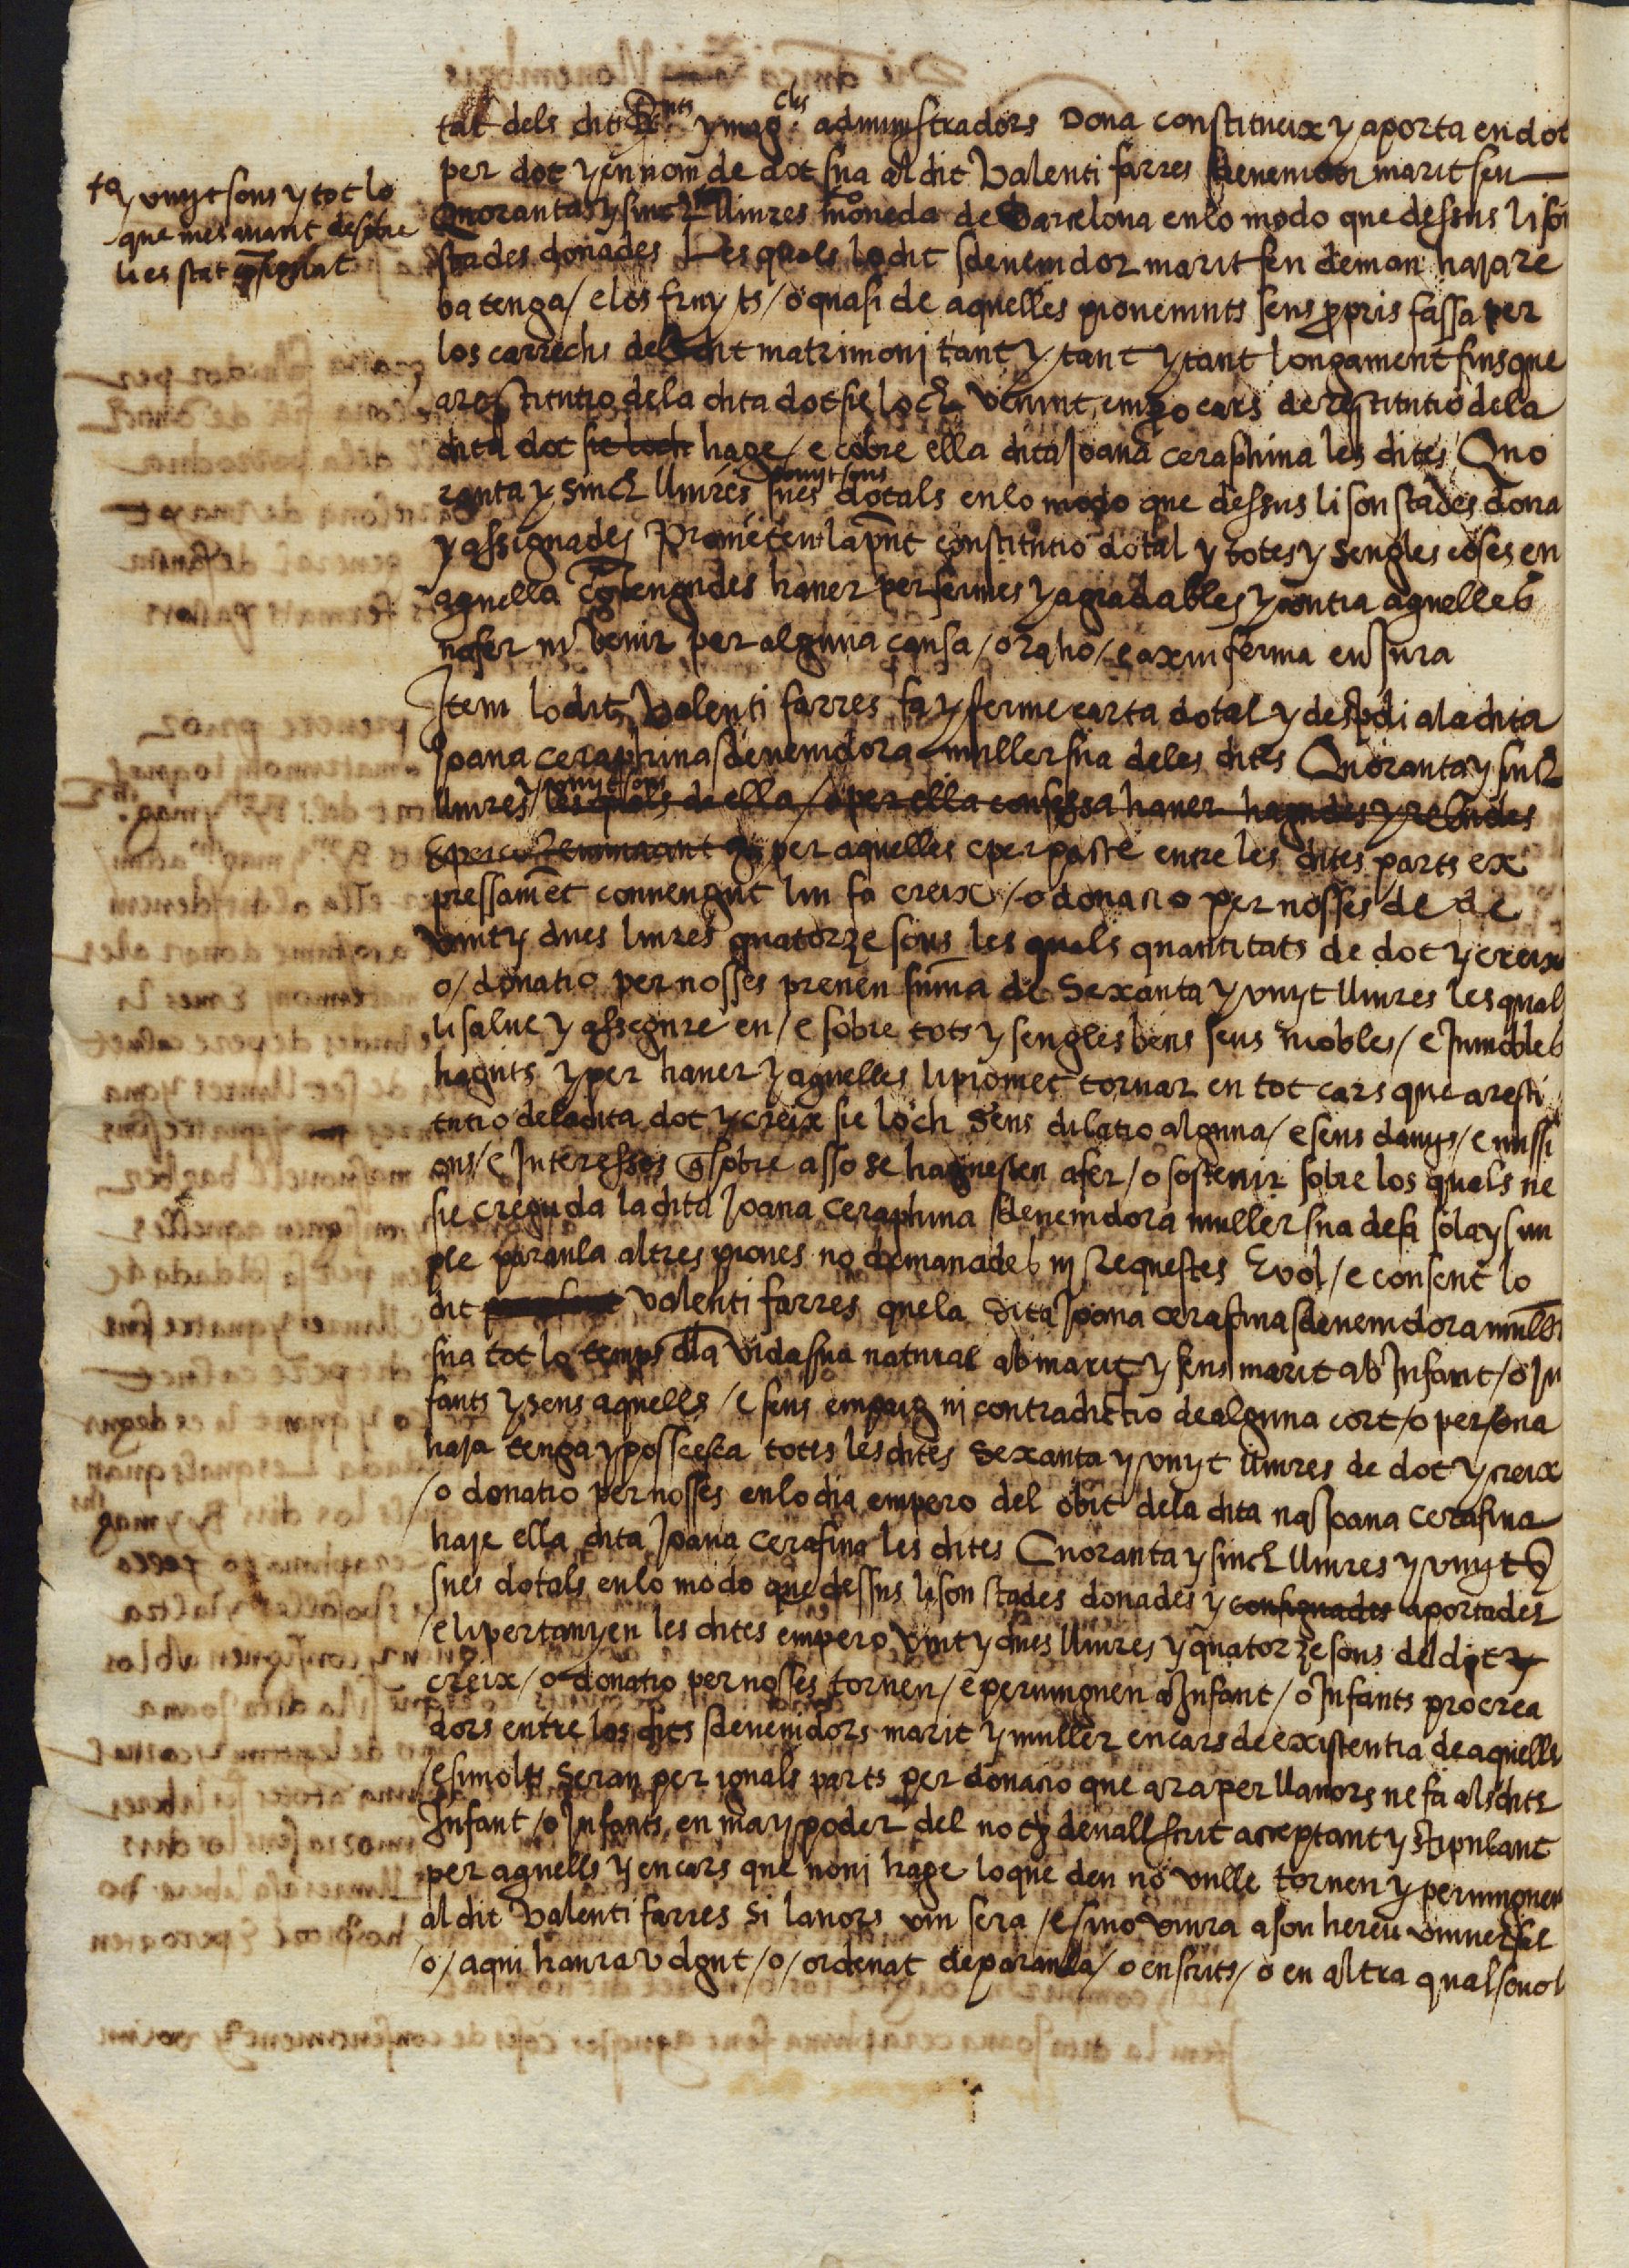 tat dels dits R.nts y mag.chs administradors Dona constitueix y aporta en dot
per dot y en nom de dot sua al dit Valenti farres sdevenidor marit seu
ta y vuyt sous y tot lo
que mes avant desobre
li es stat consignat
Quoranta y sinch lliures moneda de Barcelona en lo modo que dessus li son
stades donades Les quals lo dit sdevenidor marit seu deman haja re
ba tenga / e los fruyts / o quasi de aquelles provenints seus propris fassa per
los carrechs del dit matrimonj tant y tant y tant longament fins que
a restitutio de la dita dot sie loch Venint empo cars de restitutio de la
dita dot sie loch hage / e cobre ella dita Joana ceraphina les dites Quo
y vuyt sous
ranta y sinch lliures sues dotals en lo modo que dessus li son stades dona
y assignades Prometen la pnt constitutio dotal y totes y sengles coses en
aquella contengudes haver per fermes y agradables y contra aquelles
no fer ni venir per alguna causa / o raho / e axi u ferma en jura
Item lo dit Valenti farres fa y ferme carta dotal y de spoli a la dita
Joana ceraphina sdevenidora muller sua de les dites Quoranta y sinch
y vuyt sous
lliures / les quals de ella / o per ella confessa haver hagudes y rebudes
E per co per aquelles e per pacte entre les dites parts ex
pressamet convengut lin fa creix / o donatio per nosses de de
vint y dues liures quatorze sous les quals quantitats de dot y creix
o / donatio per nosses prenen suma de Sexanta y vuyt lliures les quals
li salve y assegure en / e sobre tots y sengles bens seus mobles / e Inmobles
haguts y per haver y aquelles li promet tornar en tot cars que a resti
tutio de la dita dot y creix sie loch Sens dilatio alguna / e sens danys / e missi
ons / e Interessos q sobre asso se haguessen a fer / o sostenir sobre los quals ne
sie creguda la dita Joana Ceraphina sdevenidora muller sua de sa sola y sim
ple paraula altres prones no demanades ni requestes E vol / e consent lo
dit Valenti farres que la dita Joana Cerafina sdevenidora muller
sua tot lo temps dla vida sua natural ab marit y sens marit ab Infant / o In
fants y sens aquells / e sens empaig ni contradictio de alguna cort / o persona
haja tenga y possesca totes les dites Sexanta y vuyt lliures de dot y creix
/ o donatio per nosses en lo dia empero del obit de la dita na Joana Cerafina
haje ella dita Joana Cerafina les dites Quoranta y sinch lliures y vuyt s
sues dotals en lo modo que dessus li son stades donades y consignades aportades
/ e li pertanyen les dites empero vint y dues lliures y quatorze sous del dit y
creix / o donatio per nosses tornen / e pervinguen a Infant / o Infants procrea
dors entre los dits sdevenidors marit y muller en cars de existentia de aquells
/ e si molts seran per iguals parts per donatio que ara per llavors ne fa als dits
Infant / o Infants en ma y poder del notj devall scrit acceptant y stipulant
per aquells y en cars que nonj hage lo que deu no vulle tornen y pervinguen
al dit Valenti farres si lavors viu sera / e si no viura a son hereu universal
/ o / a qui haura volgut / o / ordenat de paraula / o en scrits / o en altra qualsevol